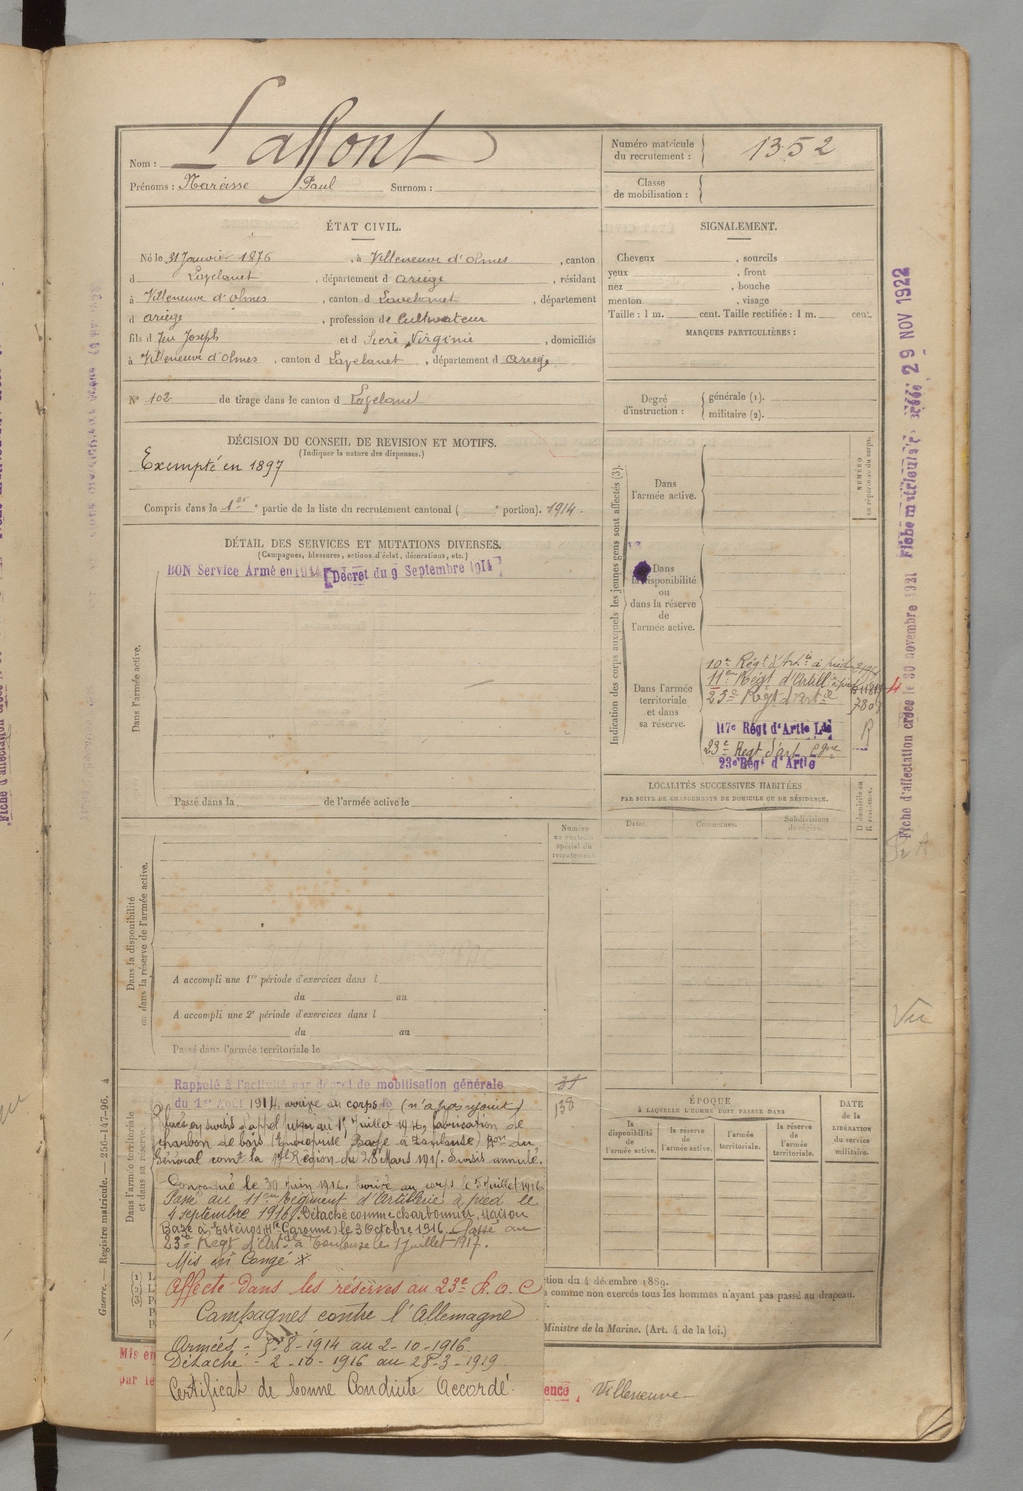 Nom : Laffont
Prénoms : Narcisse Paul Surnom :
Numéro matricule du recrutement : 1352
Classe de mobilisation :
ÉTAT CIVIL.
Né le 31 Janvier 1876, à Villeneuve d'Olmes, canton
d Lavelanet, département d Ariège, résidant
à Villeneuve d'Olmes, canton d Lavelanet, département
d Ariège, profession de Cultivateur
fils d Jean Joseph et d Virginie, domiciliés
à Villeneuve d'Olmes, canton d Lavelanet, département d Ariège
N° 102 de tirage dans le canton d Lavelanet
SIGNALEMENT.
Cheveux , sourcils
yeux , front
nez , bouche
menton , visage
Taille : 1 m. cent. Taille rectifiée : 1 m. cent.
MARQUES PARTICULIÈRES :
Degré d'instruction : générale (1).
militaire (2).
DÉCISION DU CONSEIL DE REVISION ET MOTIFS.
(Indiquer la nature des dispenses.)
Exempté en 1897
Compris dans la 1re partie de la liste du recrutement cantonal ( e portion). 1914.
DÉTAIL DES SERVICES ET MUTATIONS DIVERSES.
(Campagnes, blessures, actions d'éclat, décorations, etc.)
BON Service Armé en 1914 [Décret du 9 Septembre 1914]
Dans l'armée active.
Passé dans la de l'armée active le
Indication des corps auxquels les jeunes gens sont affectés (3).
NUMÉRO
Dans
l'armée active.
Dans
la disponibilité
ou
dans la réserve
de
l'armée active.
Dans l'armée
territoriale
et dans
sa réserve.
10e Régt d'Artie à pied
11ème Régt d'Artill à pied
23e Régt d'artie
117e Régt d'Artie Lde
23e Regt d'art Cgne
23e Régt d'Artie
R
LOCALITÉS SUCCESSIVES HABITÉES
PAR SUITE DE CHANGEMENTS DE DOMICILE OU DE RÉSIDENCE.
Dates. Communes. Subdivisions de région. D domicile ou R résidence.
Dans la disponibilité
ou dans la réserve de l'armée active.
Numéro
au contrôle
spécial du
recrutement
A accompli une 1re période d'exercices dans l
du au
A accompli une 2e période d'exercices dans l
du au
Passé dans l'armée territoriale le
Dans l'armée territoriale
et dans sa réserve.
31
138
Rappelé à l'activité par décret de mobilisation générale
du 1er Août 1914, arrivé au corps le (n'a pas rejoint)
Placé en sursis d'appel jusqu'au 15 juillet 1916, fabrication de
charbon de bois (Entreprise Baze à Toulouse) Don du
Général comt la 17e Région du 28 Mars 1915. Sursis annulé.
Convoqué le 30 juin 1916. Arrivé au corps le 5 juillet 1916
Passé au 11ème Régiment d'Artillerie à pied le
4 septembre 1916. Détaché comme charbonnier, Maison
Baze à Estenos (Hte Garonne) le 3 Octobre 1916. Passé au
23e Régt d'Artie à Toulouse le 1 juillet 1917.
Mis en Congé
Affecté dans les réserves au 23e R.A.C
Campagnes contre l'Allemagne
Armées - 8-1914 au 2-10-1916.
Détaché - 2-10-1916 au 28-3-1919.
Certificat de bonne Conduite Accordé.
ÉPOQUE
À LAQUELLE L'HOMME DOIT PASSER DANS
la disponibilité de l'armée active. la réserve de l'armée active. l'armée territoriale. la réserve de l'armée territoriale.
DATE de la LIBÉRATION du service militaire.
tion du 4 décembre 1889.
comme non exercés tous les hommes n'ayant pas passé au drapeau.
Ministre de la Marine. (Art. 4 de la loi.)
Mis en
par le
ence, Villeneuve
Guerre. — Registre matricule. — 256-147-96. 4
Fiche d'affectation créée le 30 novembre 1921 Fiche matriculaire créée 29 NOV 1922
Vu